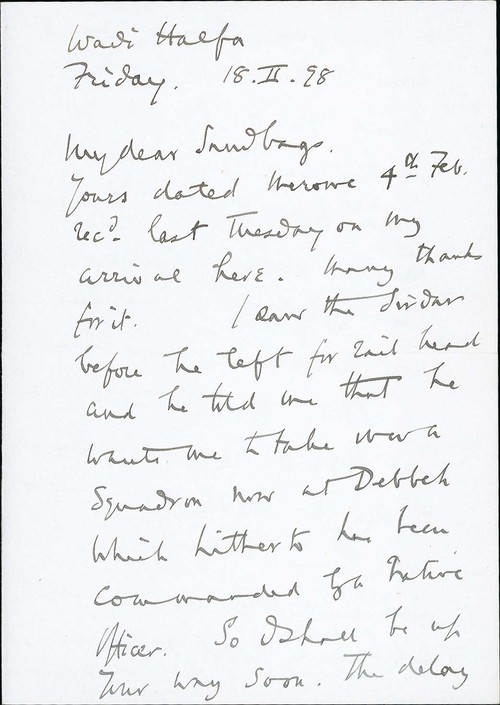 Wadi Halfa
Friday. 18.II.98
My dear Sandbags.
Yours dated Merowe 4th Feb.
rec'd last Tuesday on my
arrival here. Many thanks
for it. I saw the Sirdar
before he left for rail head
and he told me that he
wants me to take over a
Squadron now at Debbeh
which hitherto has been
commanded by a Native
Officer. So I shall be up
your way soon. The delay